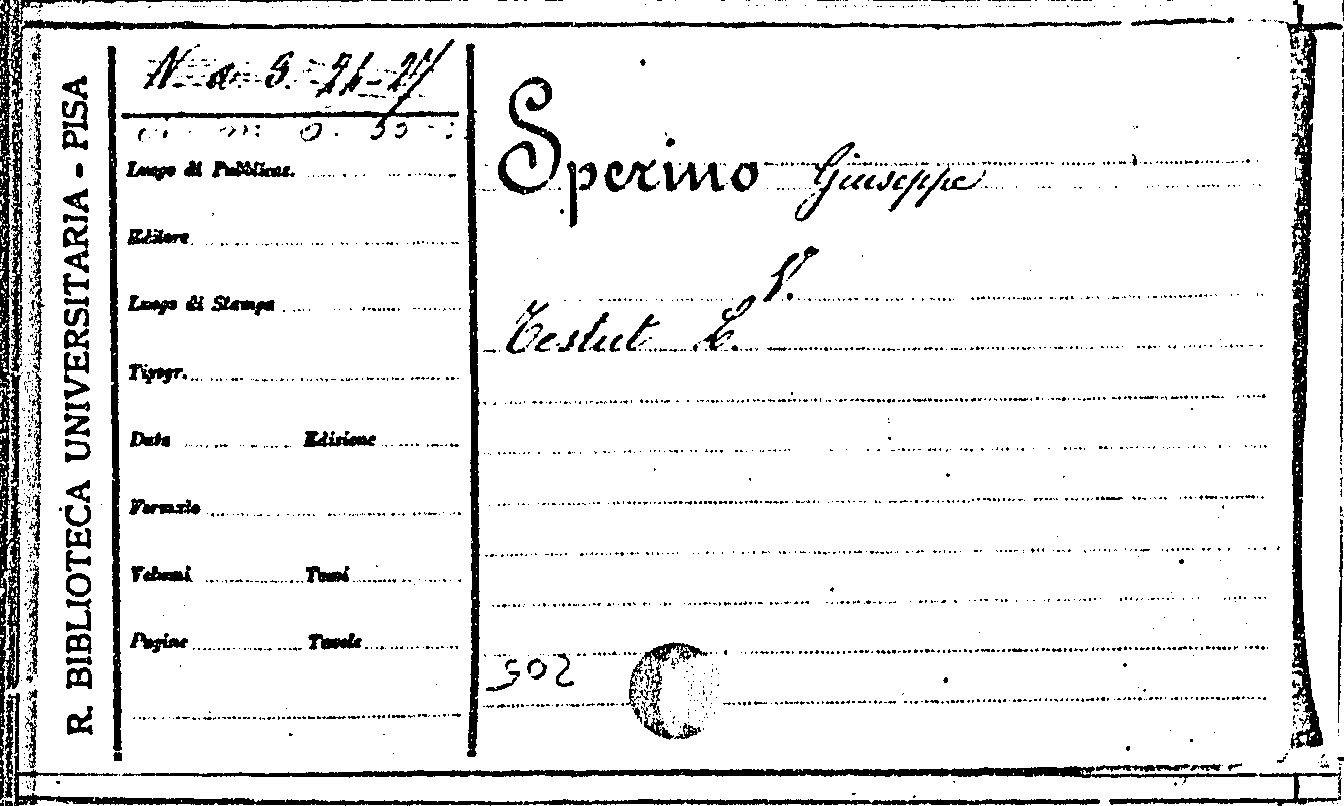 R. BIBLIOTECA UNIVERSITARIA - PISA
N. a. 3. 24-27
Luogo di Pubblicaz.
Editore
Luogo di Stampa
Tipogr.
Data Edizione
Formato
Volumi Tomi
Pagine Tavole
Sperino Giuseppe
V.
Testut L.
502